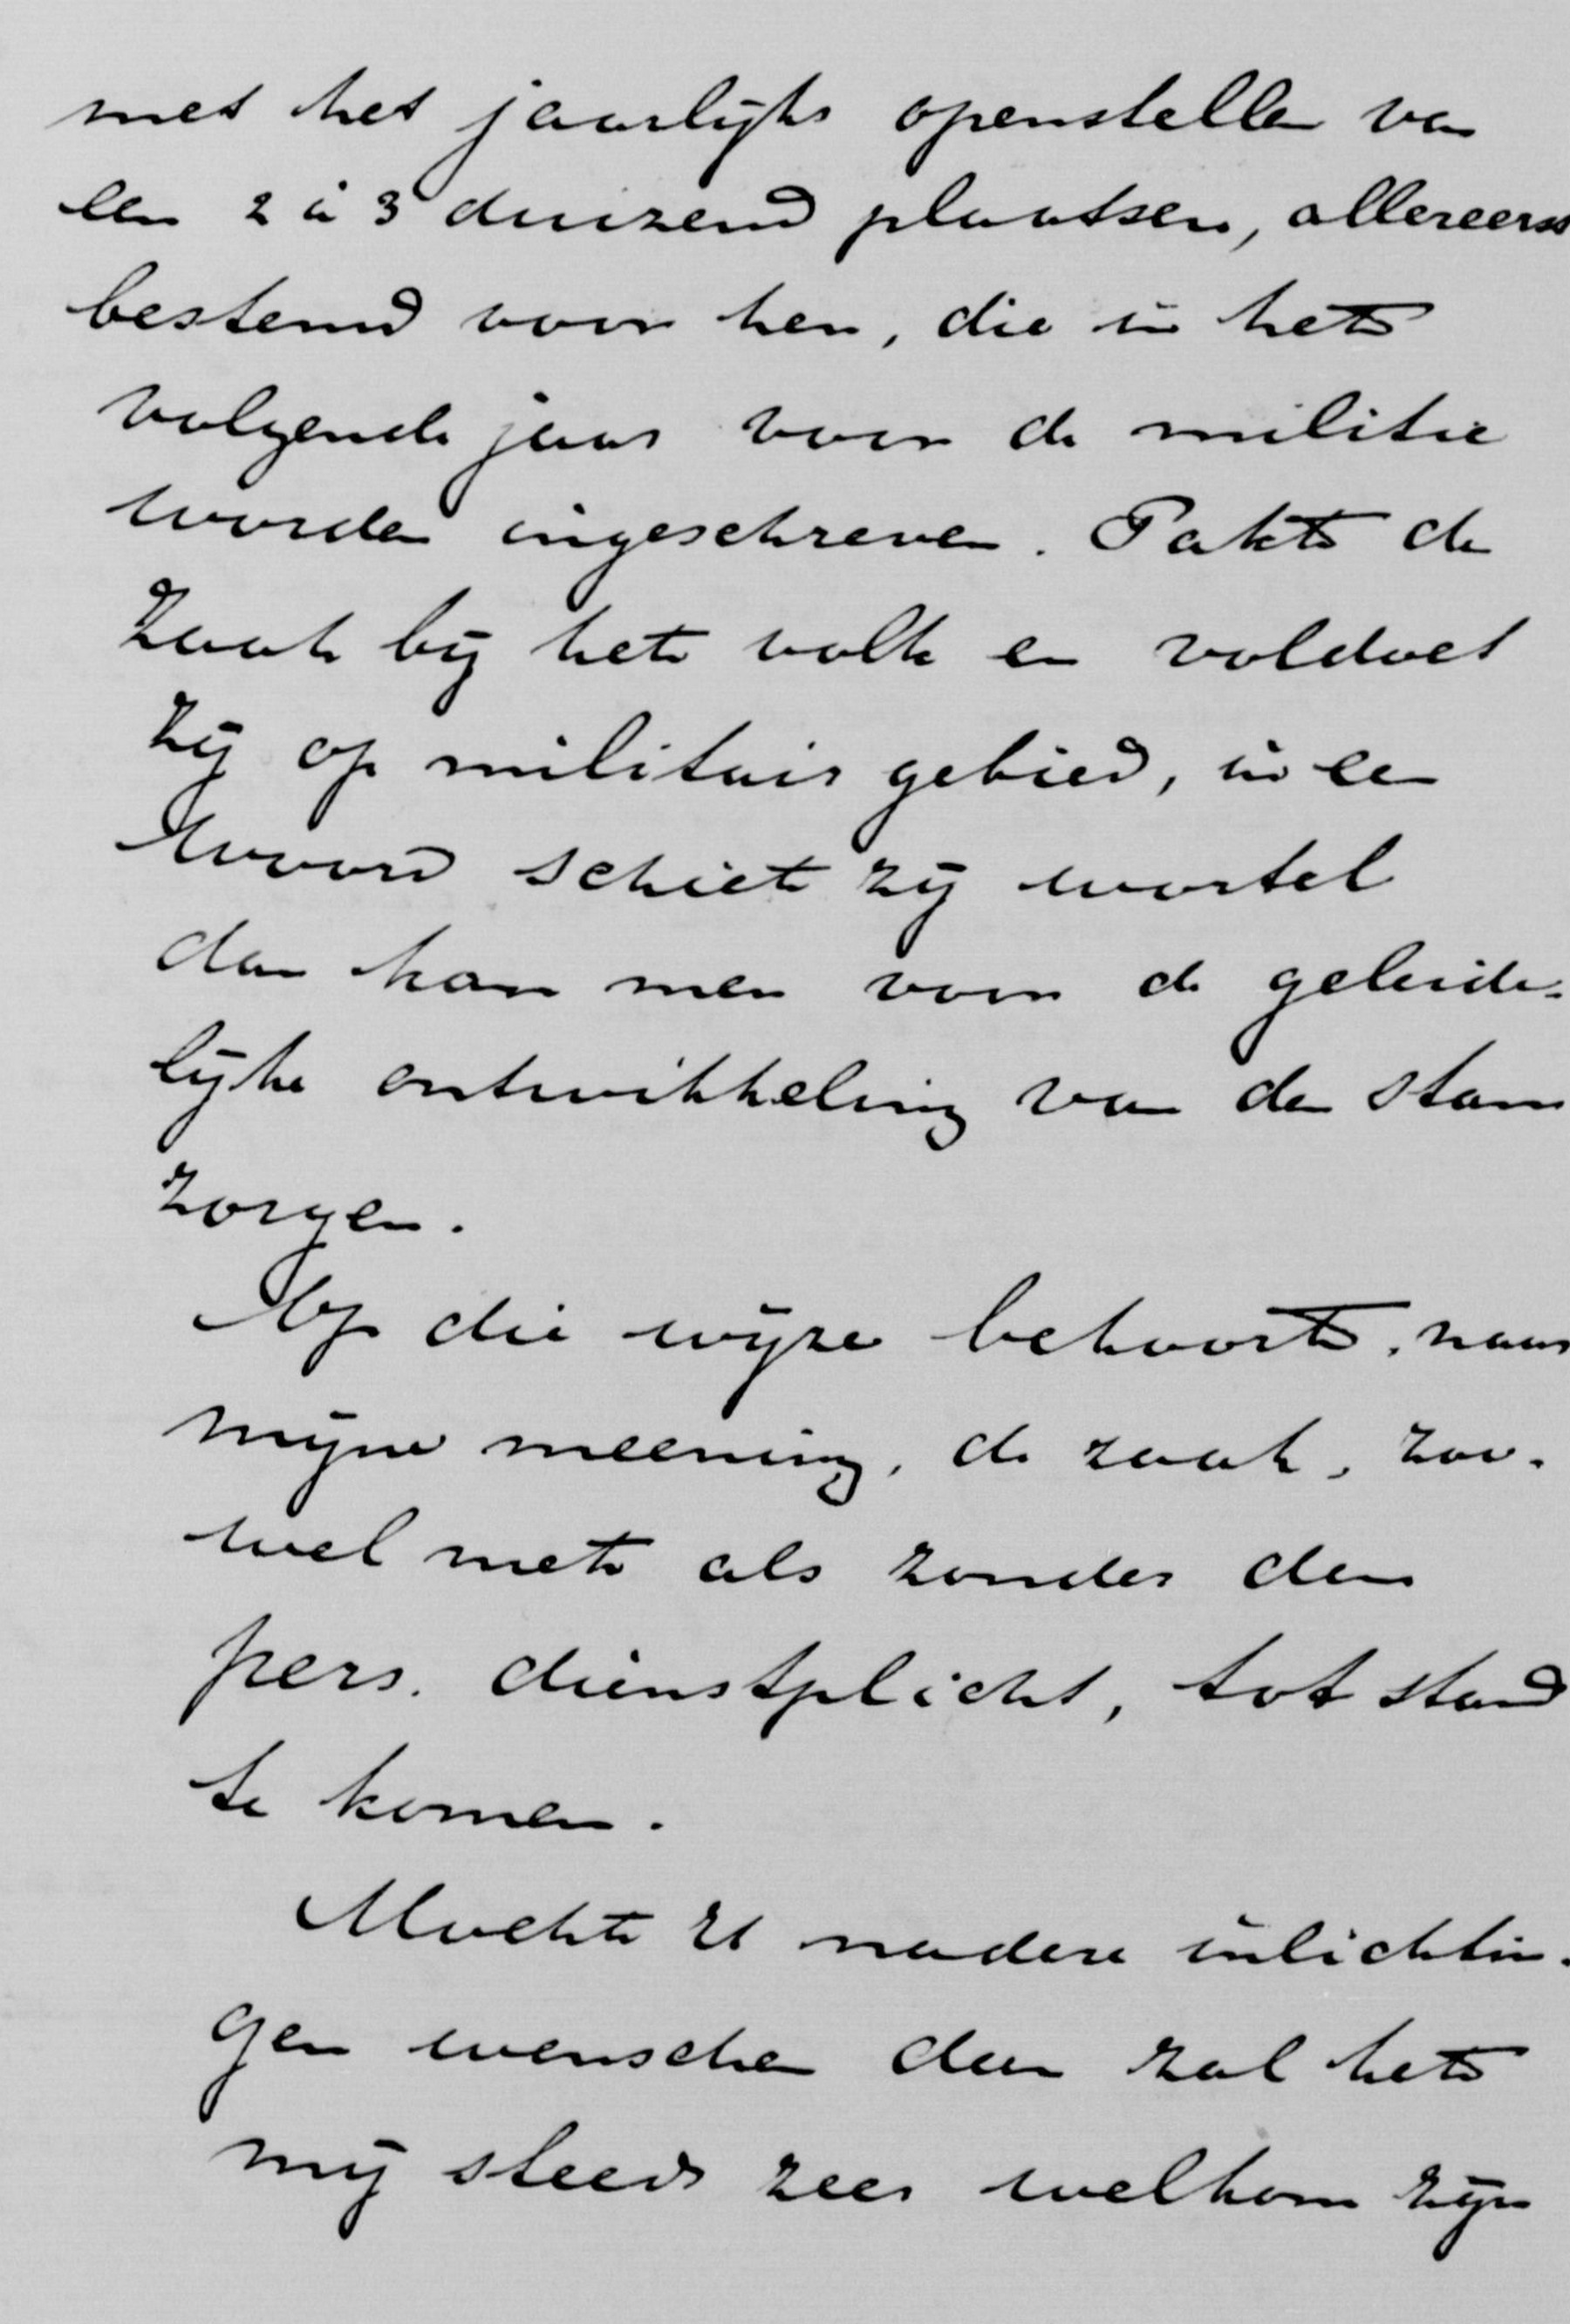 met het jaarlijks openstellen van
een 2 à 3 duizend plaatsen, allereerst
bestemd voor hen, die in het
volgende jaar voor de militie
worden ingeschreven. Pakt de
zaak bij het volk en voldoet
zij op militair gebied, in een
woord schiet zij wortel
dan kan men voor de geleide-
lijke ontwikkeling van den stam
zorgen.
Op die wijze behoort, naar
mijne meening, de zaak, zoo-
wel met als zonder den
pers. dienstplicht, tot stand
te komen.
Mocht U nadere inlichtin-
gen wenschen dan zal het
mij steeds zeer welkom zijn